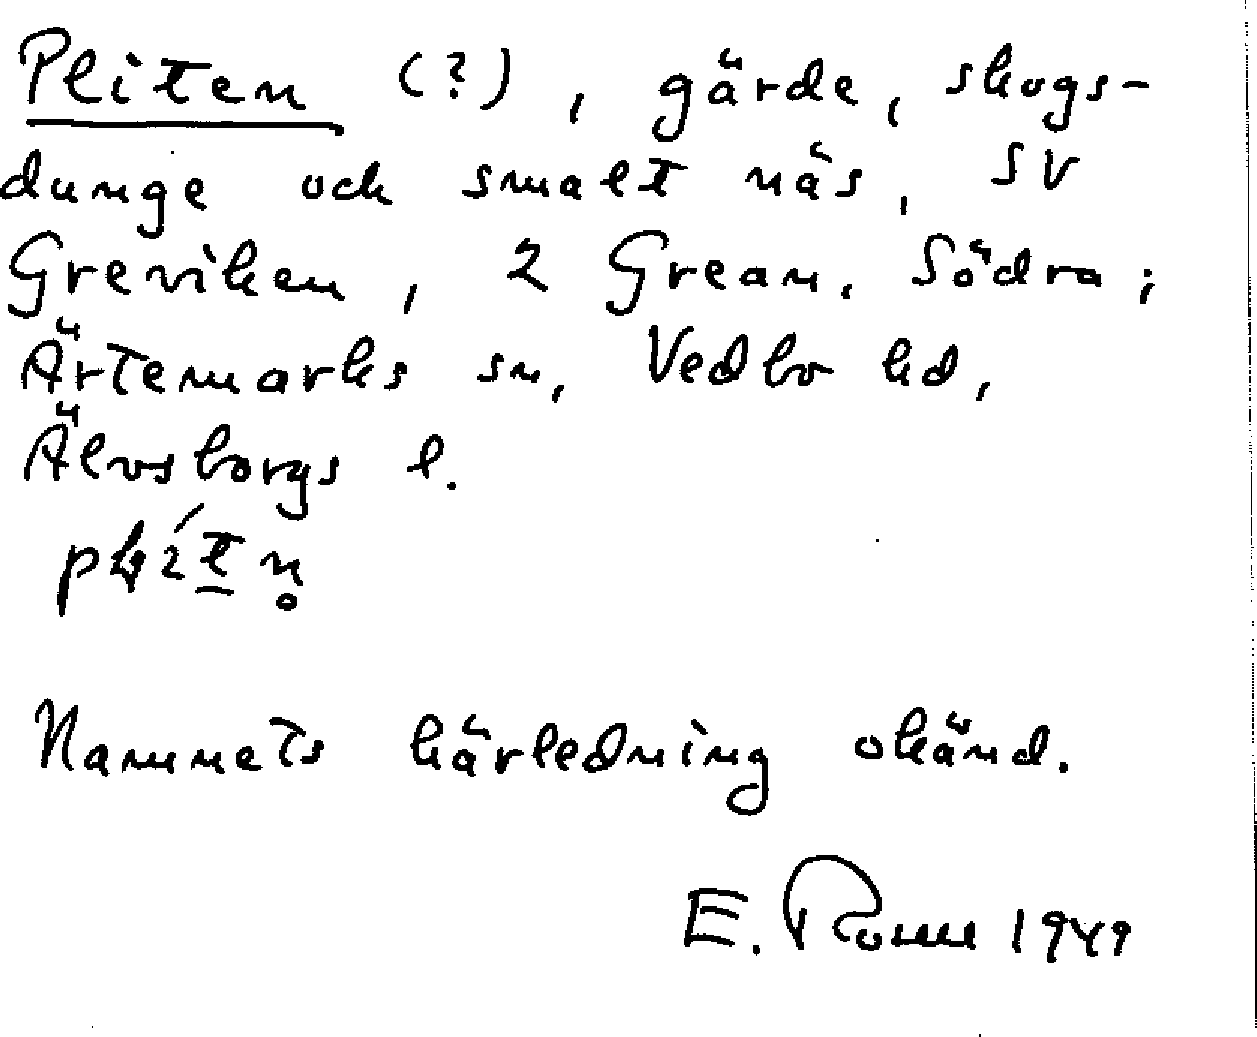 Pliten (?), gärde, skogs-
dunge och smalt näs, SV
Greviken, 2 Grean, Södra;
Ärtemarks sn, Vedbo hd,
Älvsborgs l.
Namnets härledning okänd.
E. Ronn 1949